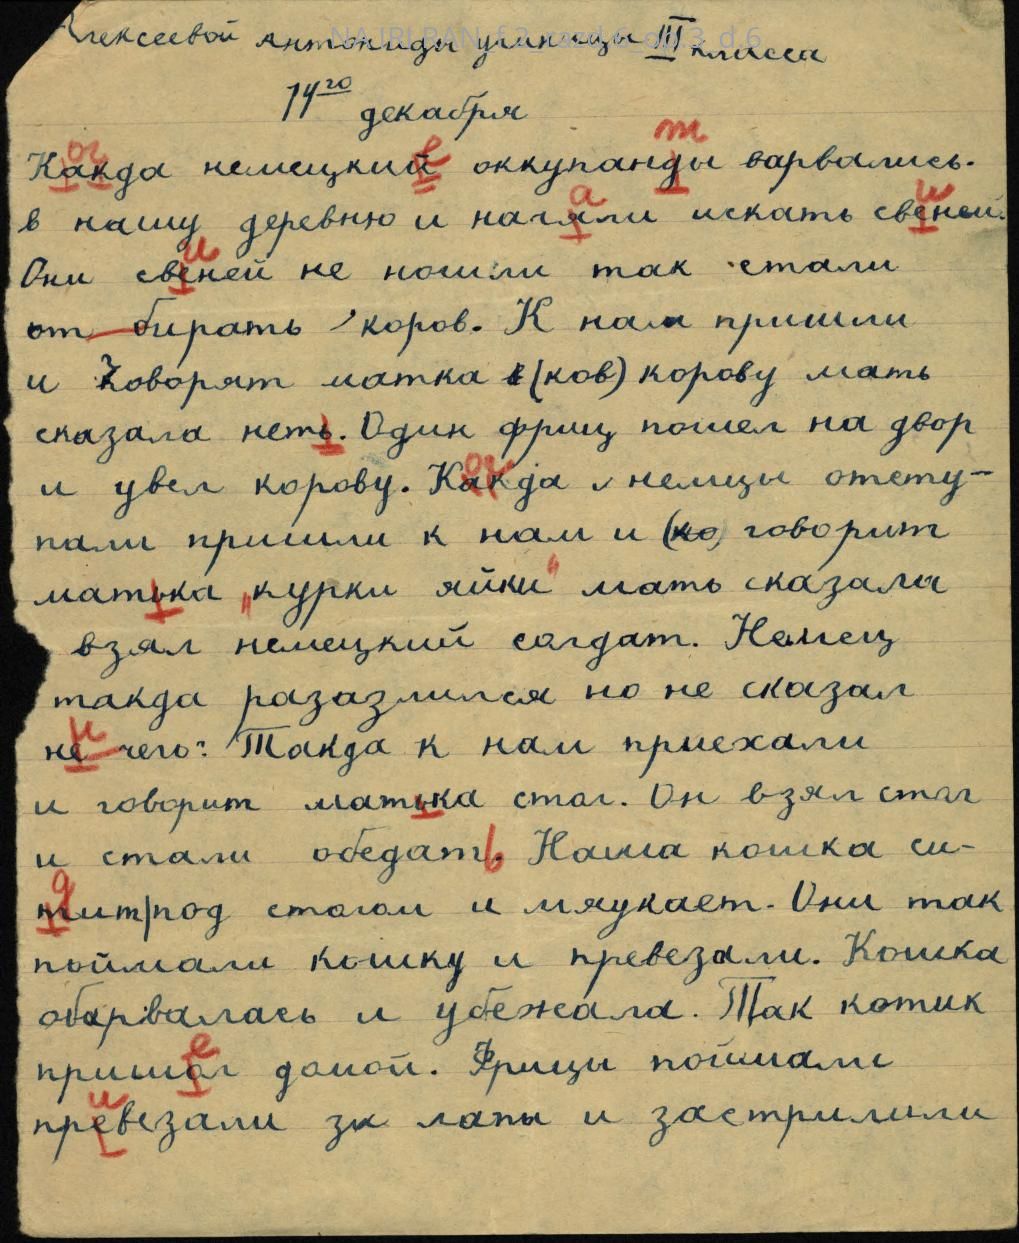 Алексеевой Антониды ученицы III класса
14го декабря
Какда немецкий оккупанды варвались.
в нашу деревню и начяли искать свеней.
Они свеней не ношли так стали
от бирать коров. К нам пришли
и говорят матка (ков) корову мать
сказала неть. Один фриц пошел на двор
и увел корову. Какда немцы отсту-
пали пришли к нам и (ко) говорит
матька „курки яйки" мать сказала
взял немецкий солдат. Немец
такда разазлился но не сказал
не чего. Такда к нам приехали
и говорит матька стол. Он взял стол
и стали обедать. Наша кошка си-
тит под столом и мяукает. Они так
поймали кошку и превезали. Кошка
обарвалась и убежала. Так котик
пришол домой. Фрицы поймали
превезали за лапы и застрилили